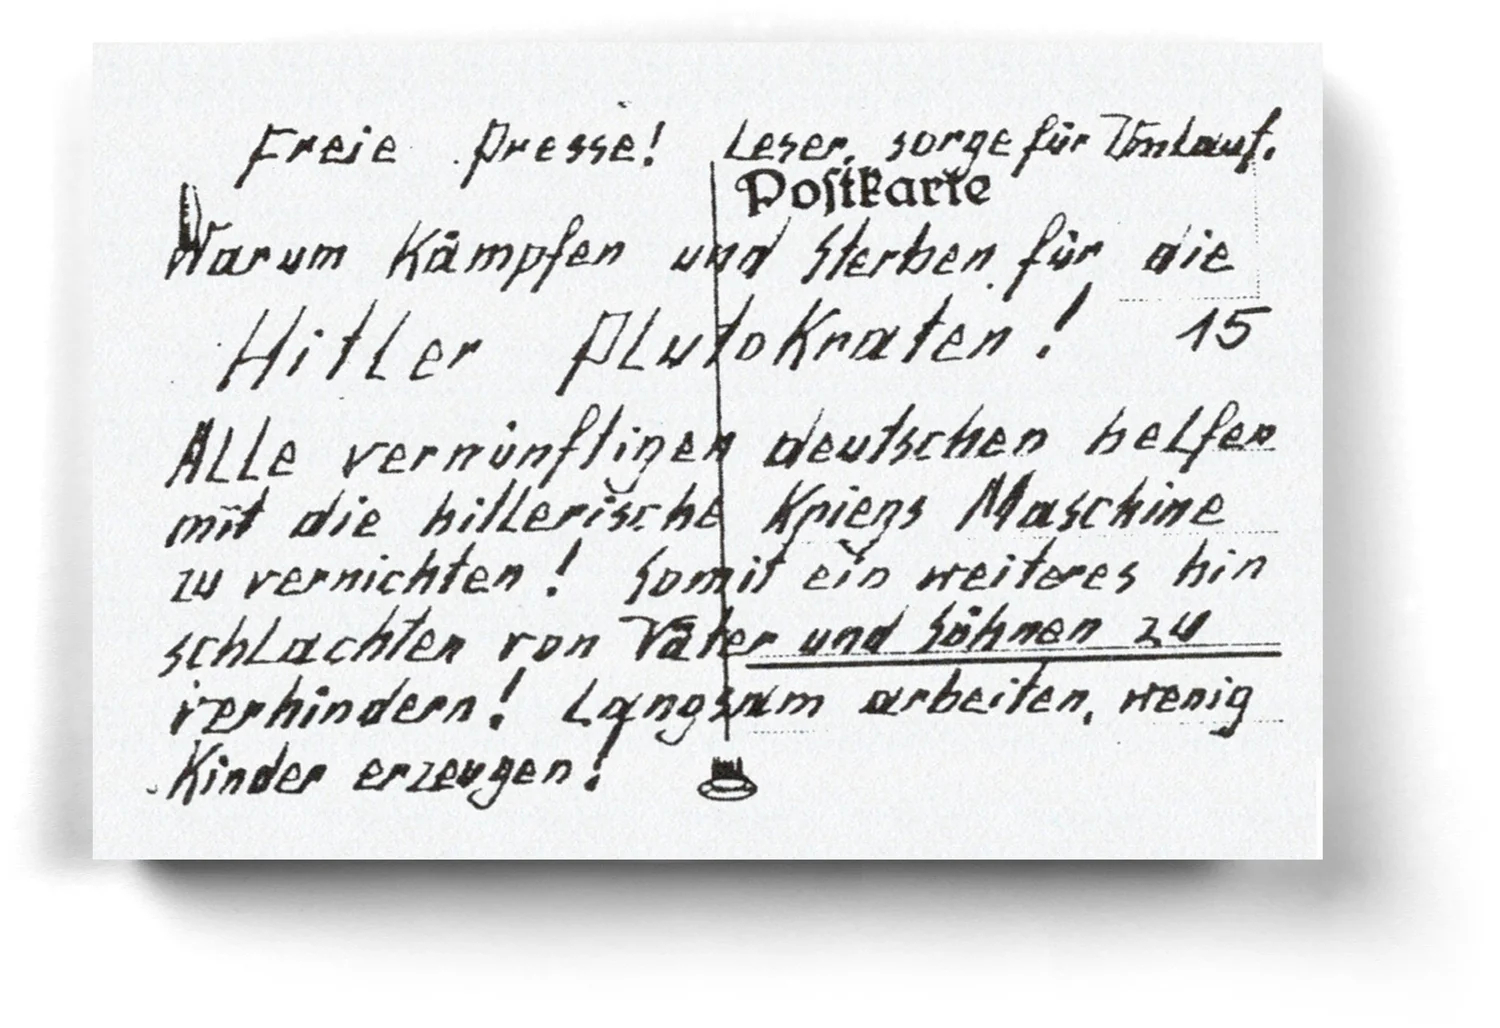 Freie Presse! Leser, sorge für Umlauf.
Postkarte
Warum Kämpfen und Sterben für die
Hitler PLutoKraten! 15
ALLe vernünftigen deutschen heLfen
mit die hitLerische Kriegs Maschine
zu vernichten! Somit ein weiteres hin
schLachten von Väter und Söhnen zu
verhindern! Langsam arbeiten, wenig
Kinder erzeugen!